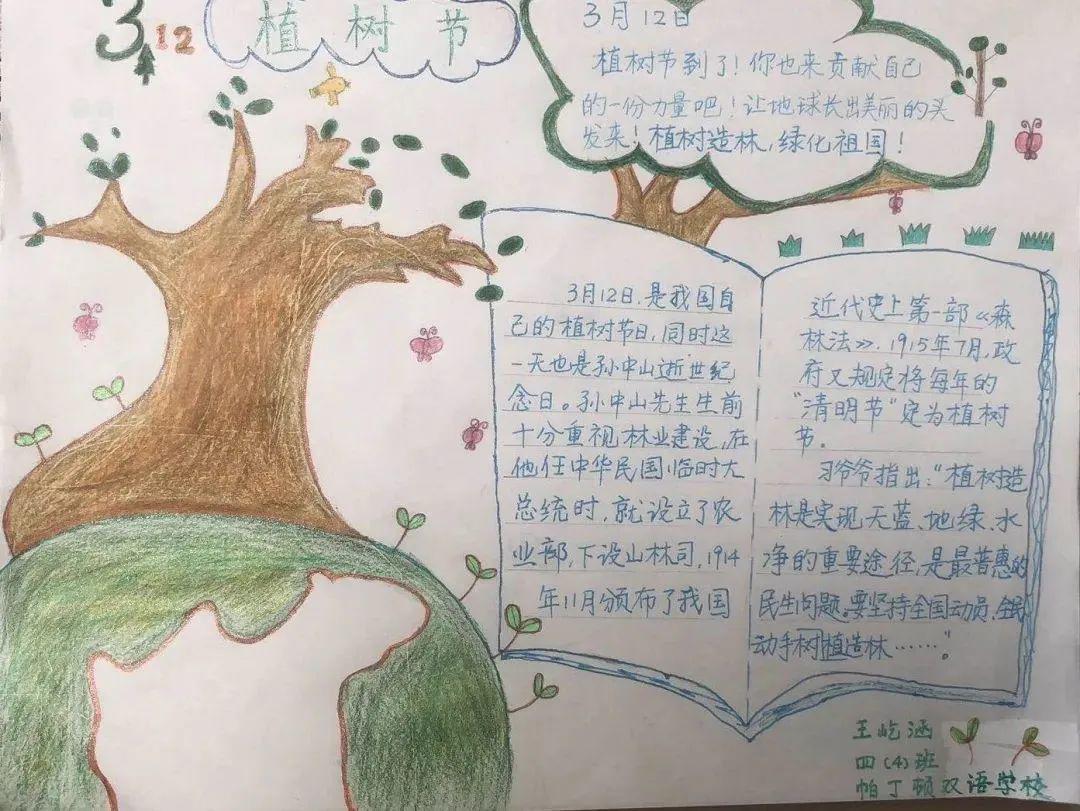 3.12
植树节
3月12日
植树节到了！你也来贡献自己
的一份力量吧！让地球长出美丽的头
发来！植树造林，绿化祖国！
3月12日，是我国自
己的植树节日，同时这
一天也是孙中山逝世纪
念日。孙中山先生生前
十分重视林业建设，在
他任中华民国临时大
总统时，就设立了农
业部，下设山林司，1914
年11月颁布了我国
近代史上第一部《森
林法》，1915年7月，政
府又规定将每年的
“清明节”定为植树
节。
习爷爷指出：“植树造
林是实现天蓝、地绿、水
净的重要途径，是最普惠的
民生问题。要坚持全国动员，全民
动手树植造林……”。
王屹涵
四(4)班
帕丁顿双语学校